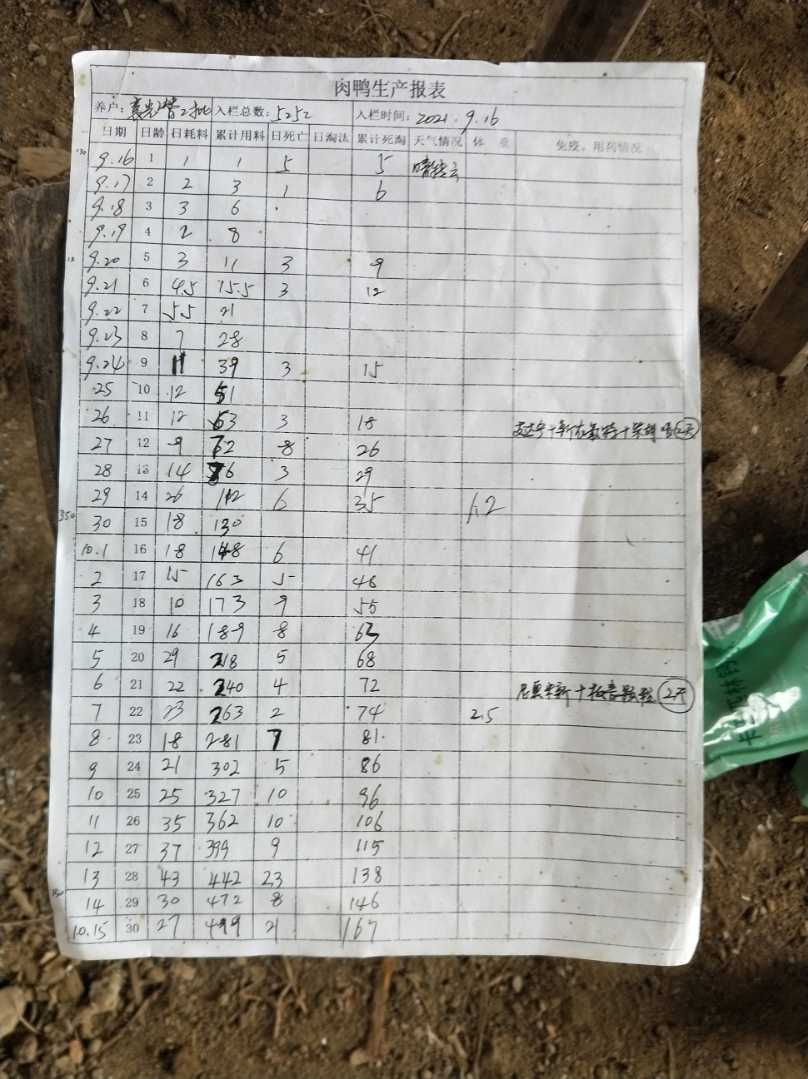 肉鸭生产报表
养户: 入栏总数: 5252 入栏时间: 2021.9.16
日期 日龄 日耗料 累计用料 日死亡 日淘汰 累计死淘 天气情况 体重 免疫、用药情况
9.16 1 1 1 5 5 晴转云
9.17 2 2 3 1 6
9.18 3 3 6
9.19 4 2 8
9.20 5 3 11 3 9
9.21 6 4.5 15.5 3 12
9.22 7 5.5 21
9.23 8 7 28
9.24 9 11 39 3 15
25 10 12 51
26 11 12 63 3 18
27 12 9 72 8 26
28 13 14 86 3 29
29 14 26 112 6 35 1.2
30 15 18 130
10.1 16 18 148 6 41
2 17 15 163 5 46
3 18 10 173 9 55
4 19 16 189 8 63
5 20 29 218 5 68
6 21 22 240 4 72 2天
7 22 23 263 2 74 2.5
8 23 18 281 7 81
9 24 21 302 5 86
10 25 25 327 10 96
11 26 35 362 10 106
12 27 37 399 9 115
13 28 43 442 23 138
14 29 30 472 8 146
10.15 30 27 499 21 167